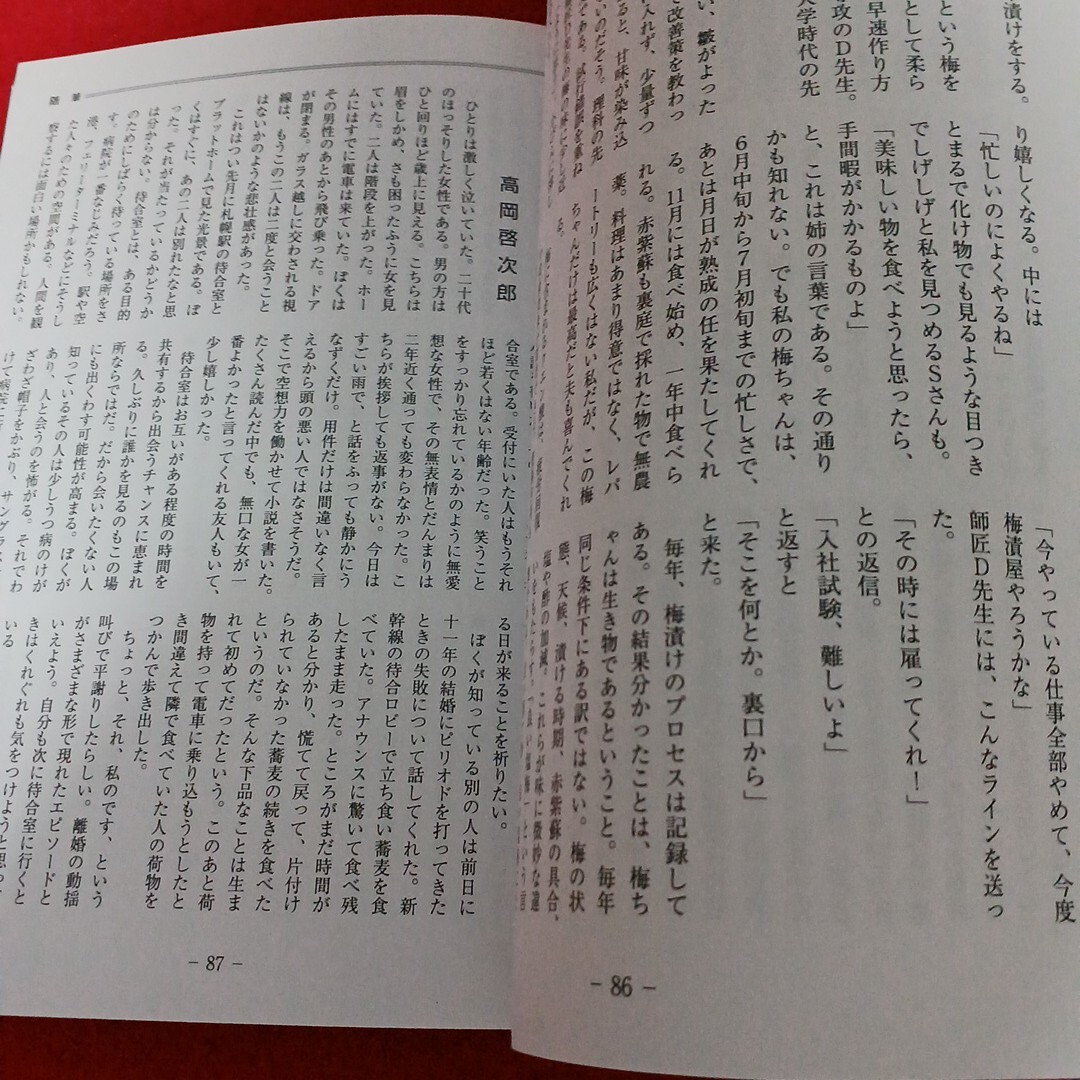 漬けをする。
という梅を
として柔ら
早速作り方
攻のD先生。
大学時代の先
い、皺がよった
で改善策を教わっ
入れず、少量ずつ
ると、甘味が染み込
いのだそう。理科の先
である。試行錯誤を重ね
り嬉しくなる。中には
「忙しいのによくやるね」
とまるで化け物でも見るような目つき
でしげしげと私を見つめるSさんも。
「美味しい物を食べようと思ったら、
手間暇がかかるものよ」
と、これは姉の言葉である。その通り
かも知れない。でも私の梅ちゃんは、
6月中旬から7月初旬までの忙しさで、
あとは月日が熟成の任を果たしてくれ
る。11月には食べ始め、一年中食べら
れる。赤紫蘇も裏庭で採れた物で無農
薬。料理はあまり得意ではなく、レパ
ートリーも広くはない私だが、この梅
ちゃんだけは最高だと夫も喜んでくれ
る。
「今やっている仕事全部やめて、今度
梅漬屋やろうかな」
師匠D先生には、こんなラインを送っ
た。
「その時には雇ってくれ！」
との返信。
「入社試験、難しいよ」
と返すと
「そこを何とか。裏口から」
と来た。
毎年、梅漬けのプロセスは記録して
ある。その結果分かったことは、梅ち
ゃんは生き物であるということ。毎年
同じ条件下にある訳ではない。梅の状
態、天候、漬ける時期、赤紫蘇の具合、
塩や酢の加減。これらが味に微妙な違
いをもたらす。
－86－
随筆
高岡啓次郎
ひとりは激しく泣いていた。二十代
のほっそりした女性である。男の方は
ひと回りほど歳上に見える。こちらは
眉をしかめ、さも困ったふうに女を見
ていた。二人は階段を上がった。ホー
ムにはすでに電車は来ていた。ぼくは
その男性のあとから飛び乗った。ドア
が閉まる。ガラス越しに交わされる視
線は、もうこの二人は二度と会うこと
はないかのような悲壮感があった。
これはつい先月に札幌駅の待合室と
プラットホームで見た光景である。ぼ
くはすぐに、あの二人は別れたなと思
った。それが当たっているかどうか
は分からない。待合室とは、ある目的
のためにしばらく待っている場所をさ
す。病院が一番なじみだろう。駅や空
港、フェリーターミナルなどにそうし
た人々のための空間がある。人間を観
察するには面白い場所かもしれない。
合室である。受付にいた人はもうそれ
ほど若くはない年齢だった。笑うこと
をすっかり忘れているかのように無愛
想な女性で、その無表情とだんまりは
二年近く通っても変わらなかった。こ
ちらが挨拶しても返事がない。今日は
すごい雨で、と話をふっても静かにう
なずくだけ。用件だけは間違いなく言
えるから頭の悪い人ではなさそうだ。
そこで空想力を働かせて小説を書いた。
たくさん読んだ中でも、無口な女が一
番よかったと言ってくれる友人もいて、
少し嬉しかった。
待合室はお互いがある程度の時間を
共有するから出会うチャンスに恵まれ
る。久しぶりに誰かを見るのもこの場
所ならではだ。だから会いたくない人
にも出くわす可能性が高まる。ぼくが
知っているその人は少しうつ病のけが
あり、人と会うのを怖がる。それでわ
ざわざ帽子をかぶり、サングラス
けて病院に
る日が来ることを祈りたい。
ぼくが知っている別の人は前日に
十一年の結婚にピリオドを打ってきた
ときの失敗について話してくれた。新
幹線の待合ロビーで立ち食い蕎麦を食
べていた。アナウンスに驚いて食べ残
したまま走った。ところがまだ時間が
あると分かり、慌てて戻って、片付け
られていなかった蕎麦の続きを食べた
というのだ。そんな下品なことは生ま
れて初めてだったという。このあと荷
物を持って電車に乗り込もうとしたと
き間違えて隣で食べていた人の荷物を
つかんで歩き出した。
ちょっと、それ、私のです、という
叫びで平謝りしたらしい。離婚の動揺
がさまざまな形で現れたエピソードと
いえよう。自分も次に待合室に行くと
きはくれぐれも気をつけようと思って
いる
－87－